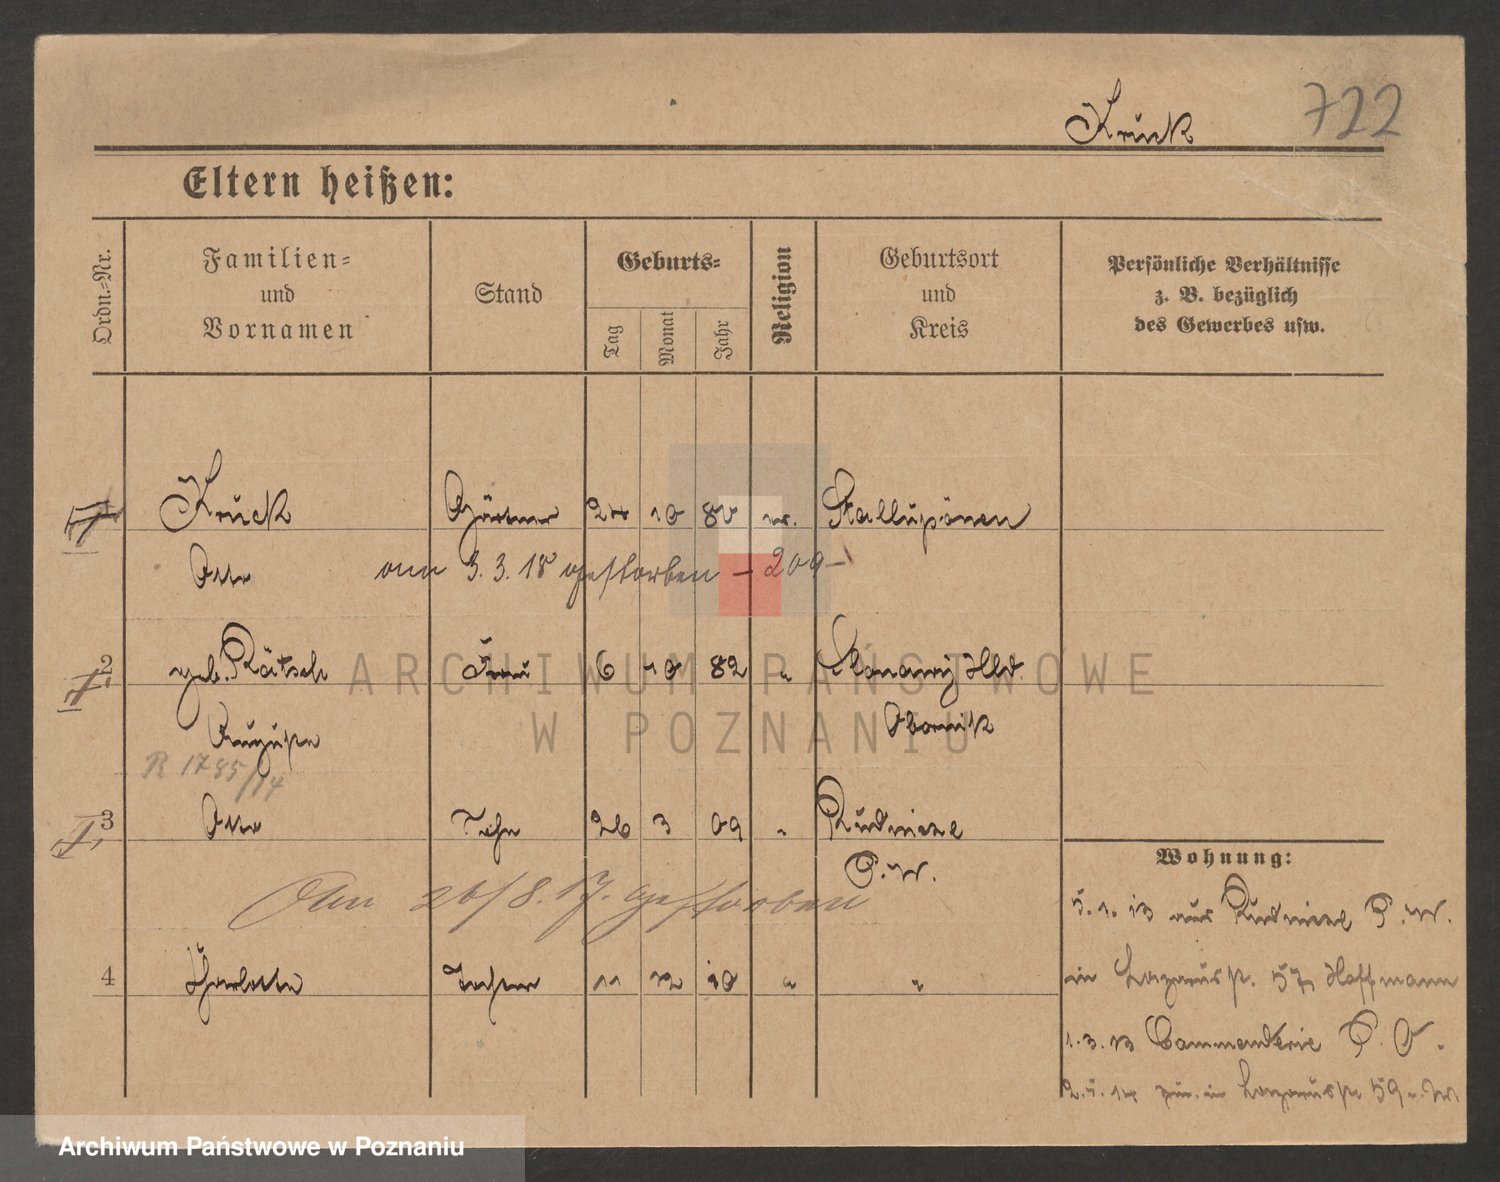 Kruck 722
Eltern heißen:
Ordn.-Nr. Familien= und Vornamen Stand Geburts= Tag Monat Jahr Religion Geburtsort und Kreis Persönliche Verhältnisse z. B. bezüglich des Gewerbes usw.
Kruck Gärtner 24 10 80 Stallupönen
Otto am 3. 3. 18 gestorben – 209 –
2 geb. Rätsch Frau 6 10 82 " Hld.
Auguste Obornik
R 1785/14
3 Otto Sohn 26 3 09 " Rudnicze
P. W.
Am 26/8. 17. gestorben
4 Charlotte Tochter 11 12 10 " "
Wohnung:
5. 1. 13 aus Rudnicze P. W.
in Lazarusstr. 57 Hoffmann
1. 3. 13 Commenderie P. O.
2. 5. 14 zur. in Lazarusstr 59 b. W.
ARCHIWUM PAŃSTWOWE
W POZNANIU
Archiwum Państwowe w Poznaniu